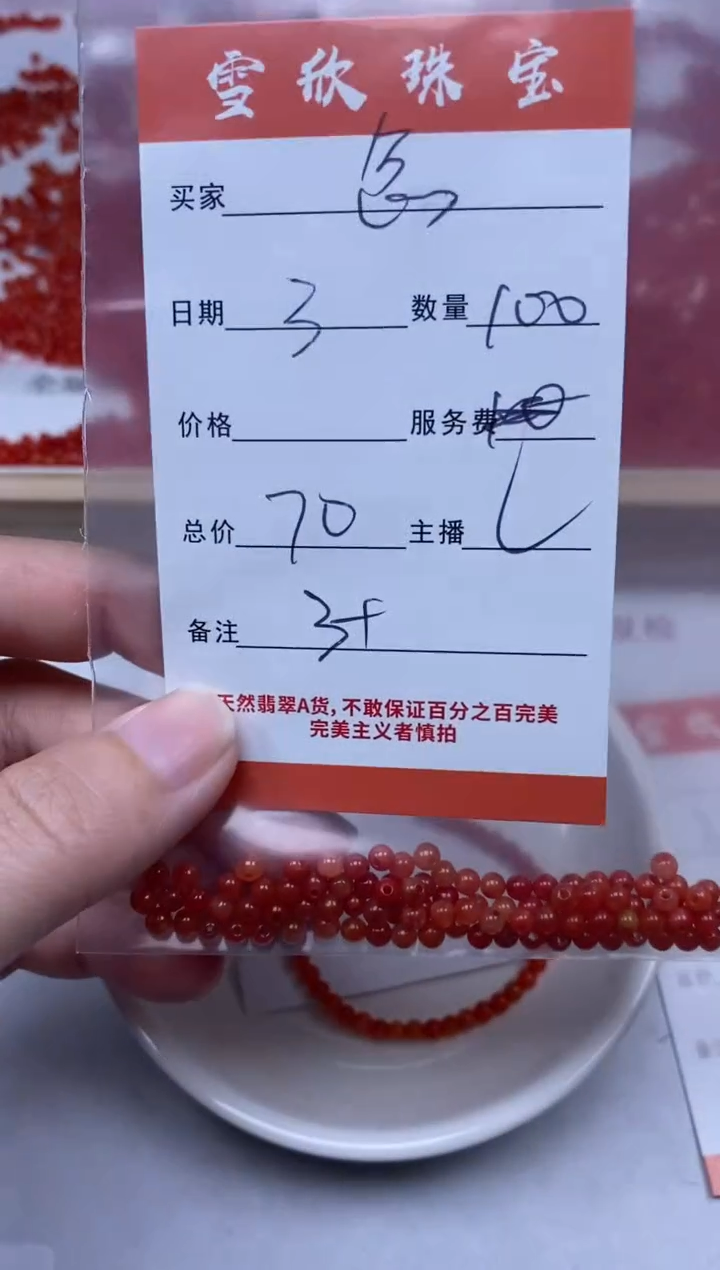 雪欣珠宝
买家
日期 3 数量 100
价格 服务费
总价 70 主播 L
备注 3+
天然翡翠A货，不敢保证百分之百完美
完美主义者慎拍